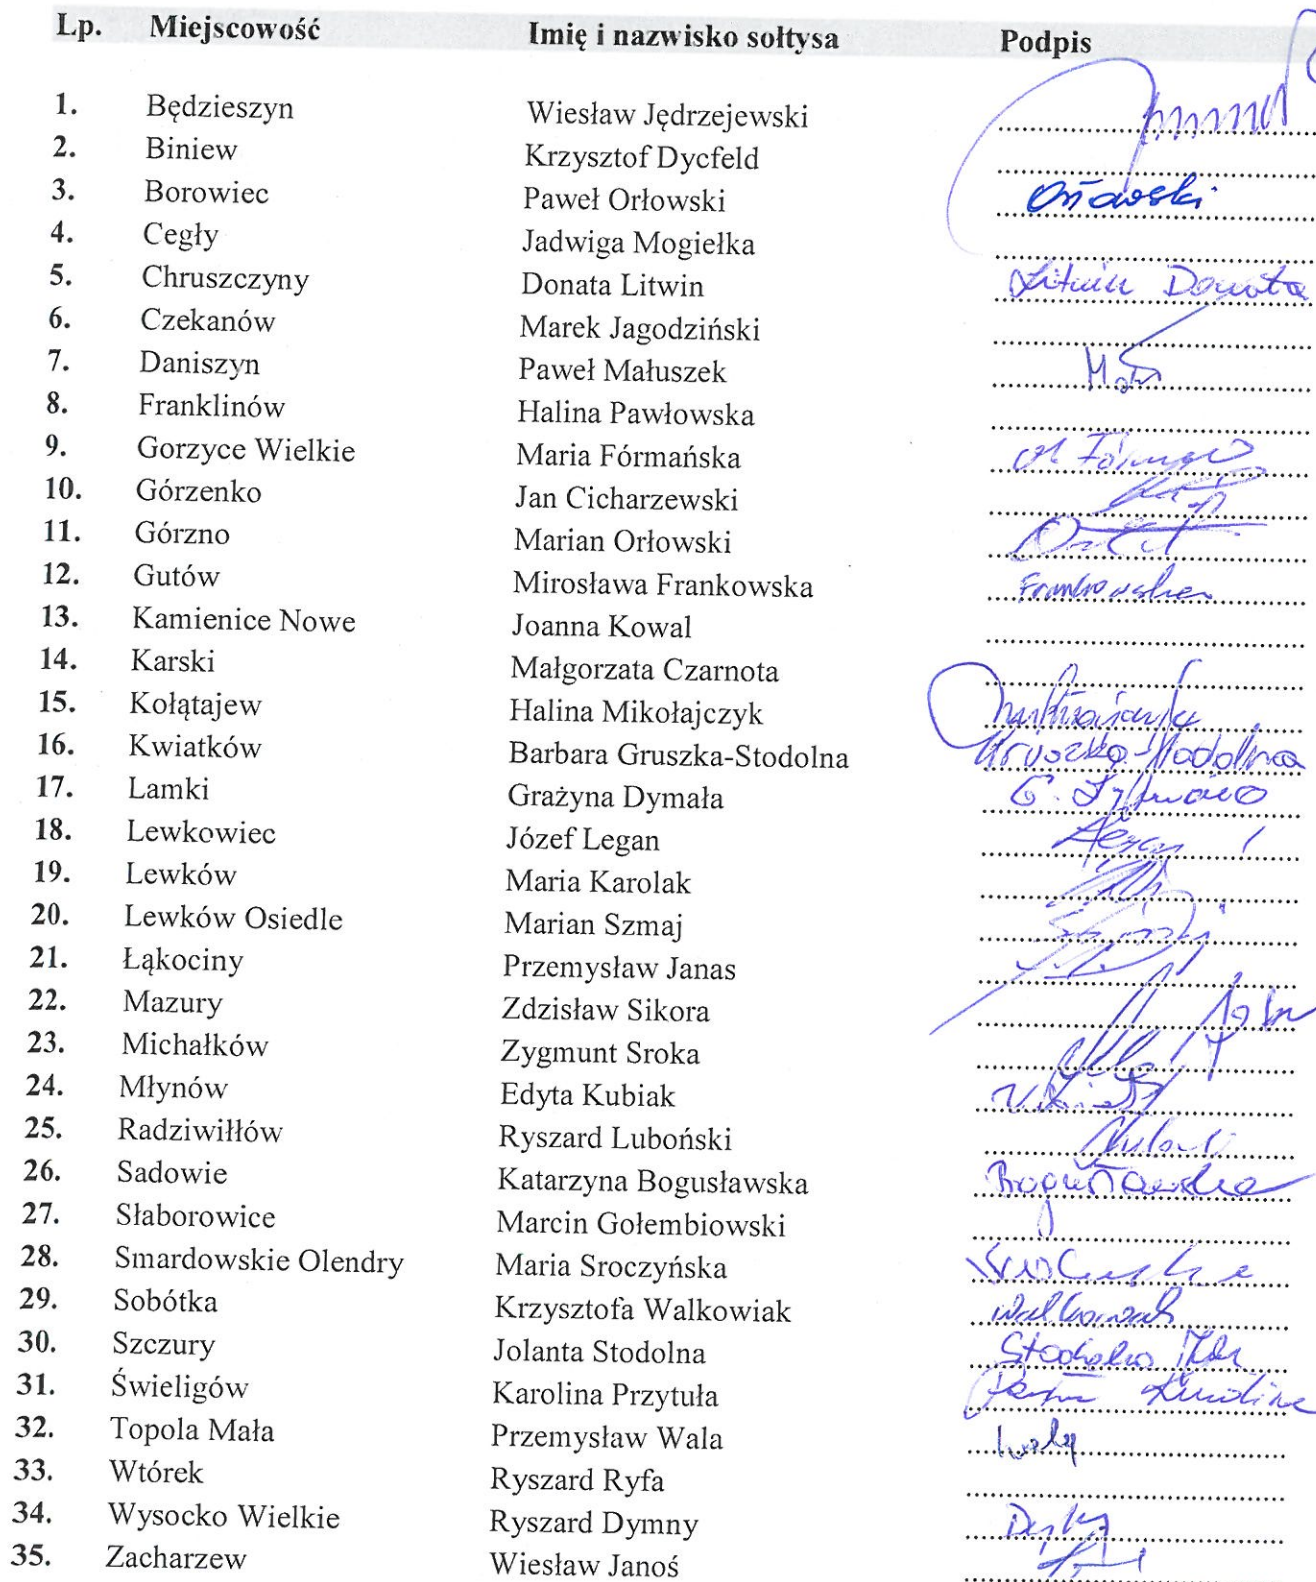 Lp. Miejscowość Imię i nazwisko sołtysa Podpis
1. Będzieszyn Wiesław Jędrzejewski
2. Biniew Krzysztof Dycfeld
3. Borowiec Paweł Orłowski Orłowski
4. Cegły Jadwiga Mogiełka
5. Chruszczyny Donata Litwin Litwin Donata
6. Czekanów Marek Jagodziński
7. Daniszyn Paweł Małuszek
8. Franklinów Halina Pawłowska
9. Gorzyce Wielkie Maria Fórmańska
10. Górzenko Jan Cicharzewski
11. Górzno Marian Orłowski
12. Gutów Mirosława Frankowska Frankowska
13. Kamienice Nowe Joanna Kowal
14. Karski Małgorzata Czarnota
15. Kołątajew Halina Mikołajczyk
16. Kwiatków Barbara Gruszka-Stodolna Gruszka-Stodolna
17. Lamki Grażyna Dymała
18. Lewkowiec Józef Legan
19. Lewków Maria Karolak
20. Lewków Osiedle Marian Szmaj
21. Łąkociny Przemysław Janas
22. Mazury Zdzisław Sikora
23. Michałków Zygmunt Sroka
24. Młynów Edyta Kubiak
25. Radziwiłłów Ryszard Luboński
26. Sadowie Katarzyna Bogusławska Bogusławska
27. Słaborowice Marcin Gołembiowski
28. Smardowskie Olendry Maria Sroczyńska
29. Sobótka Krzysztofa Walkowiak Walkowiak
30. Szczury Jolanta Stodolna
31. Świeligów Karolina Przytuła
32. Topola Mała Przemysław Wala
33. Wtórek Ryszard Ryfa
34. Wysocko Wielkie Ryszard Dymny
35. Zacharzew Wiesław Janoś